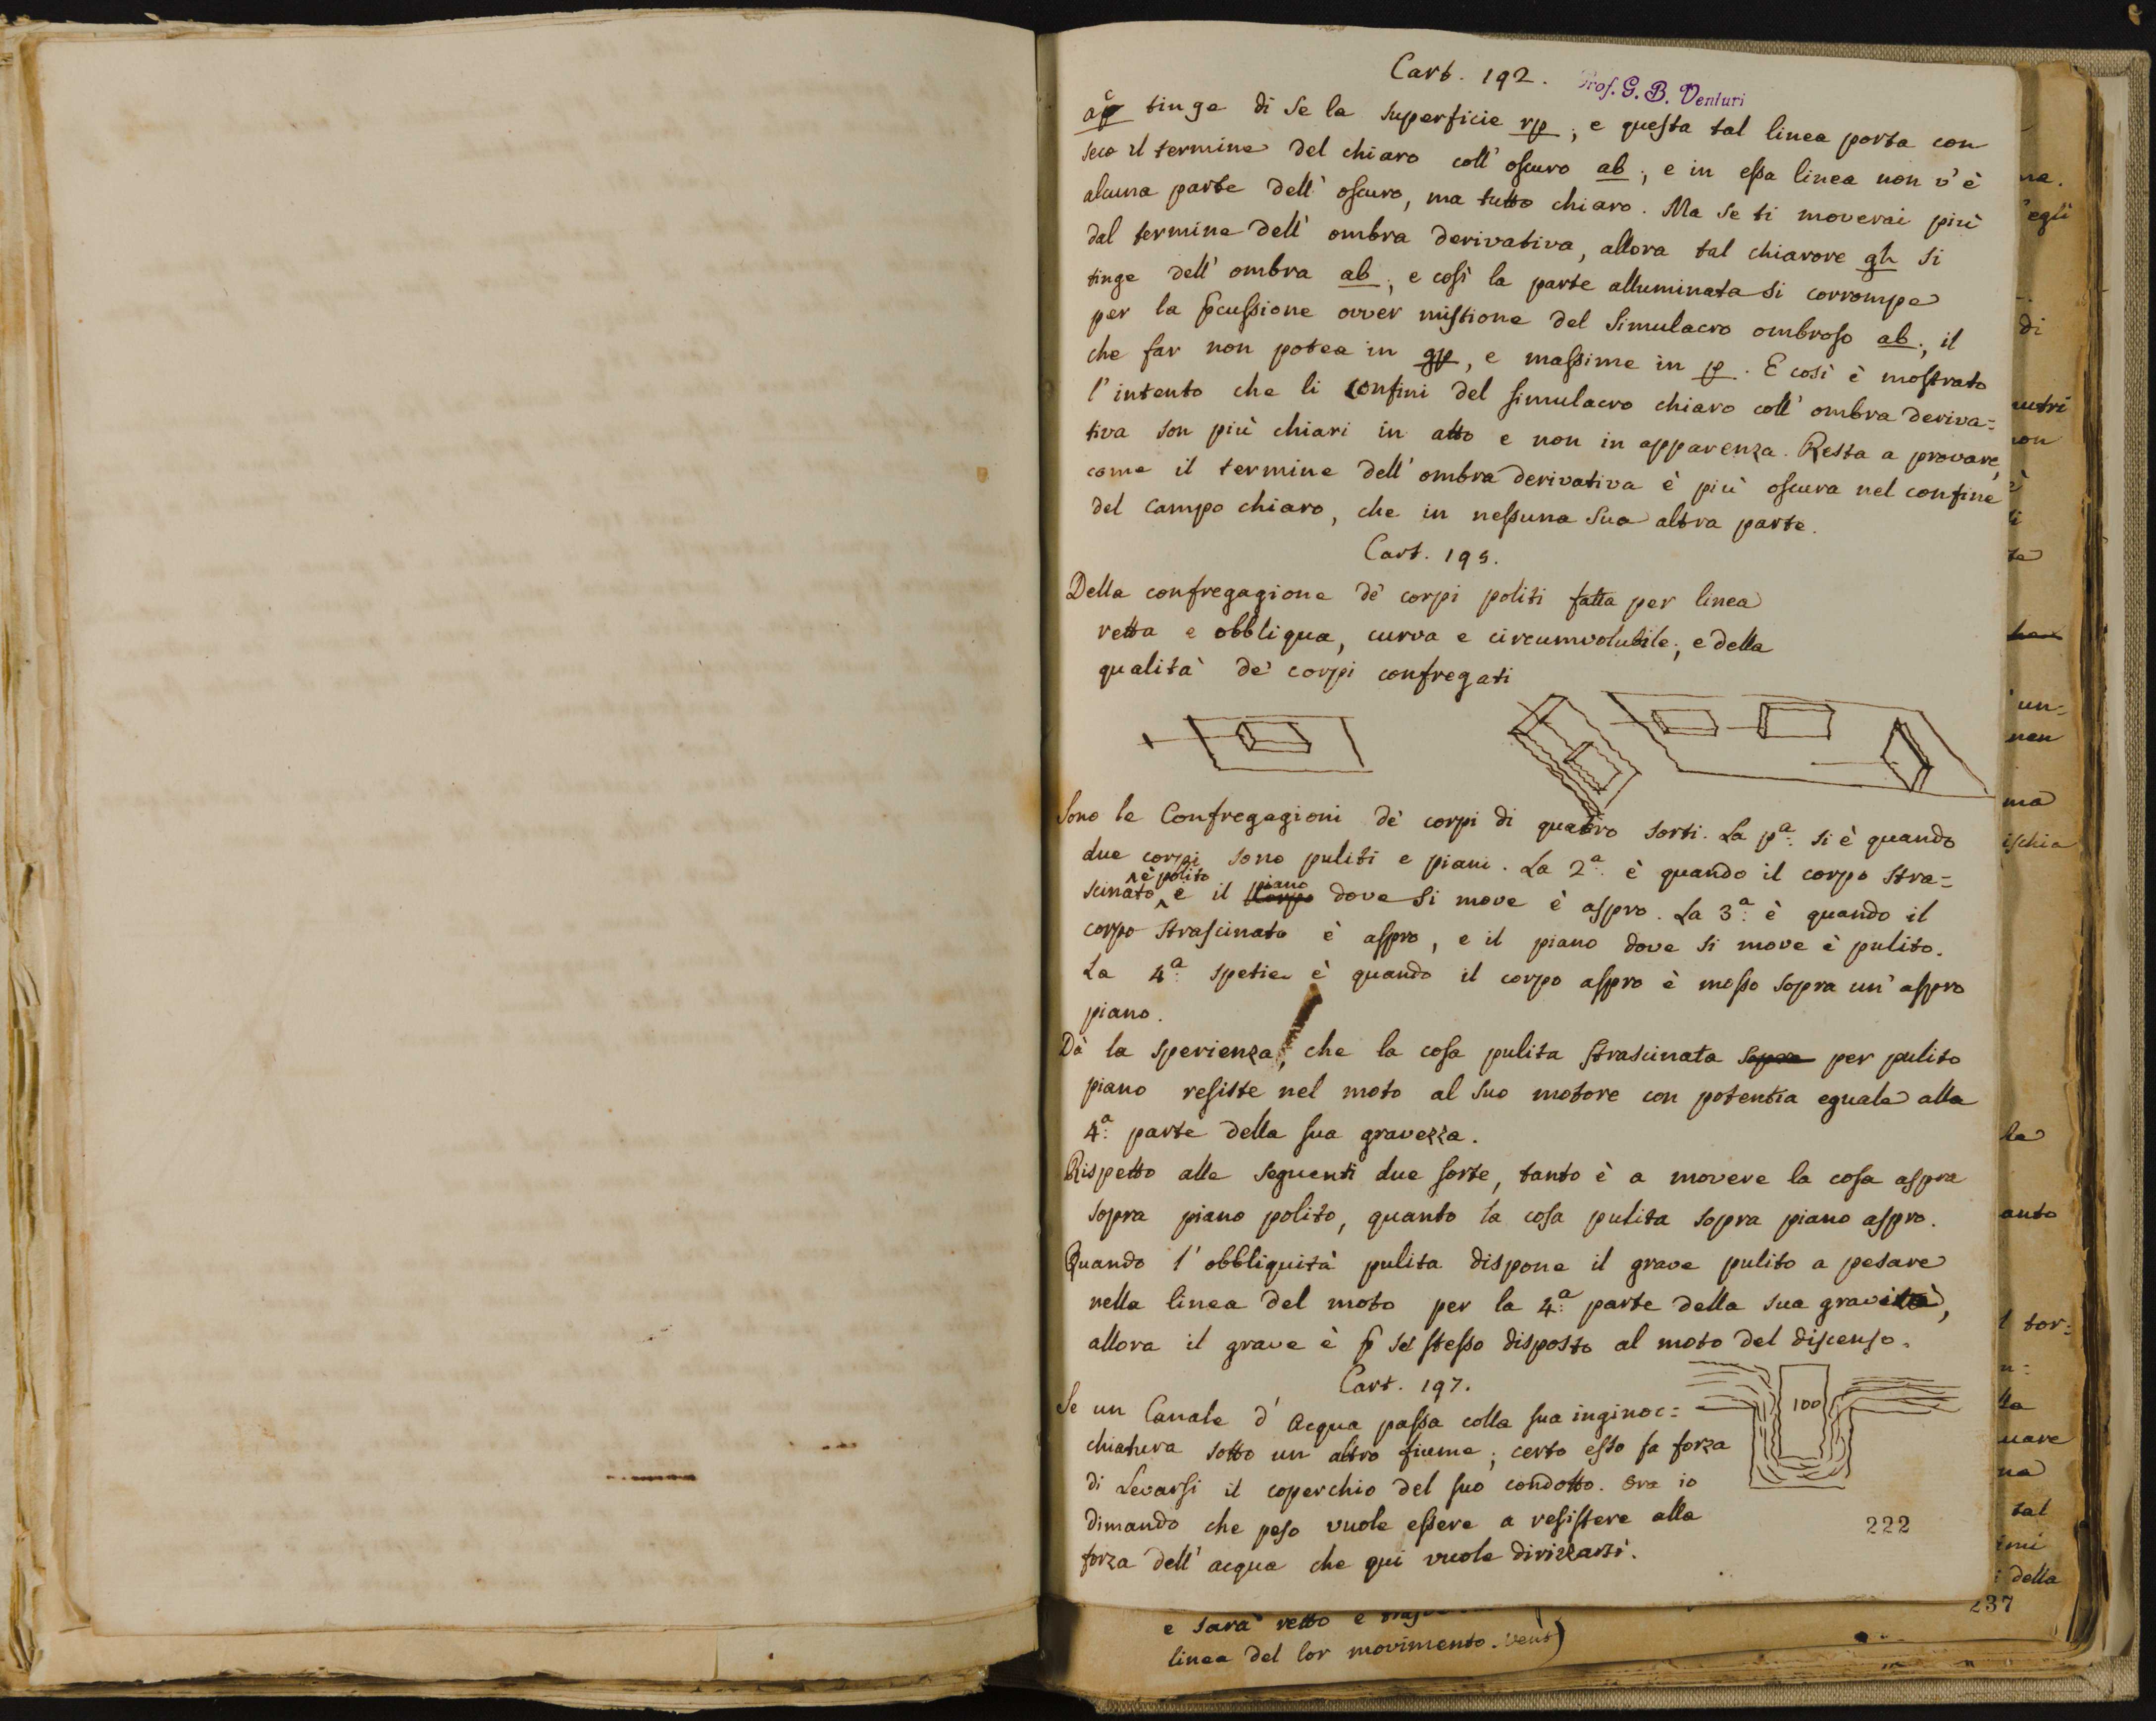 Cart. 192.
Prof. G. B. Venturi
tinge di se la superficie rp; e questa tal linea porta con
seco il termine del chiaro coll' oscuro ab; e in essa linea non v'è
alcuna parte dell' oscuro, ma tutto chiaro. Ma se ti moverai più
dal termine dell' ombra derivativa, allora tal chiarore gh si
tinge dell' ombra ab; e così la parte alluminata si corrompe
per la pcussione ovver mistione del Simulacro ombroso ab; il
che far non potea in gp, e massime in p. E così è mostrato
l'intento che li confini del simulacro chiaro coll' ombra deriva=
tiva son più chiari in atto e non in apparenza. Resta a provare,
come il termine dell' ombra derivativa è più oscura nel confine
del campo chiaro, che in nessuna sua altra parte.
Cart. 195.
Della confregagione de' corpi politi fatta per linea
retta e obbliqua, curva e circumvolubile; e della
qualità de' corpi confregati
Sono le Confregagioni de' corpi di quatro sorti. La pª. si è quando
due corpi sono puliti e piani. La 2ª. è quando il corpo stra=
scinato è polito e il corpo piano dove si move è aspro. La 3ª. è quando il
corpo strascinato è aspro, e il piano dove si move è pulito.
La 4ª. spetie è quando il corpo aspro è mosso sopra un' aspro
piano.
Dà la sperienza, che la cosa pulita strascinata sopra per pulito
piano resiste nel moto al suo motore con potentia eguale alla
4ª. parte della sua gravezza.
Rispetto alle seguenti due sorte, tanto è a movere la cosa aspra
sopra piano polito, quanto la cosa pulita sopra piano aspro.
Quando l'obbliquità pulita dispone il grave pulito a pesare
nella linea del moto per la 4ª. parte della sua gravità,
allora il grave è p se stesso disposto al moto del discenso.
Cart. 197.
Se un Canale d' Acqua passa colla sua inginoc=
chiatura sotto un altro fiume; certo esso fa forza
di Levarsi il coperchio del suo condotto. Ora io
dimando che peso vuole essere a resistere alla
forza dell' acqua che qui vuole dirizzarsi.
100
222
e sarà retto e
linea del lor movimento. Vent)
na.
egli
di
nutri
non
è
te
un=
nen
ma
ischia
la
anto
l tor=
n=
la
uare
na
tal
imi
della
237